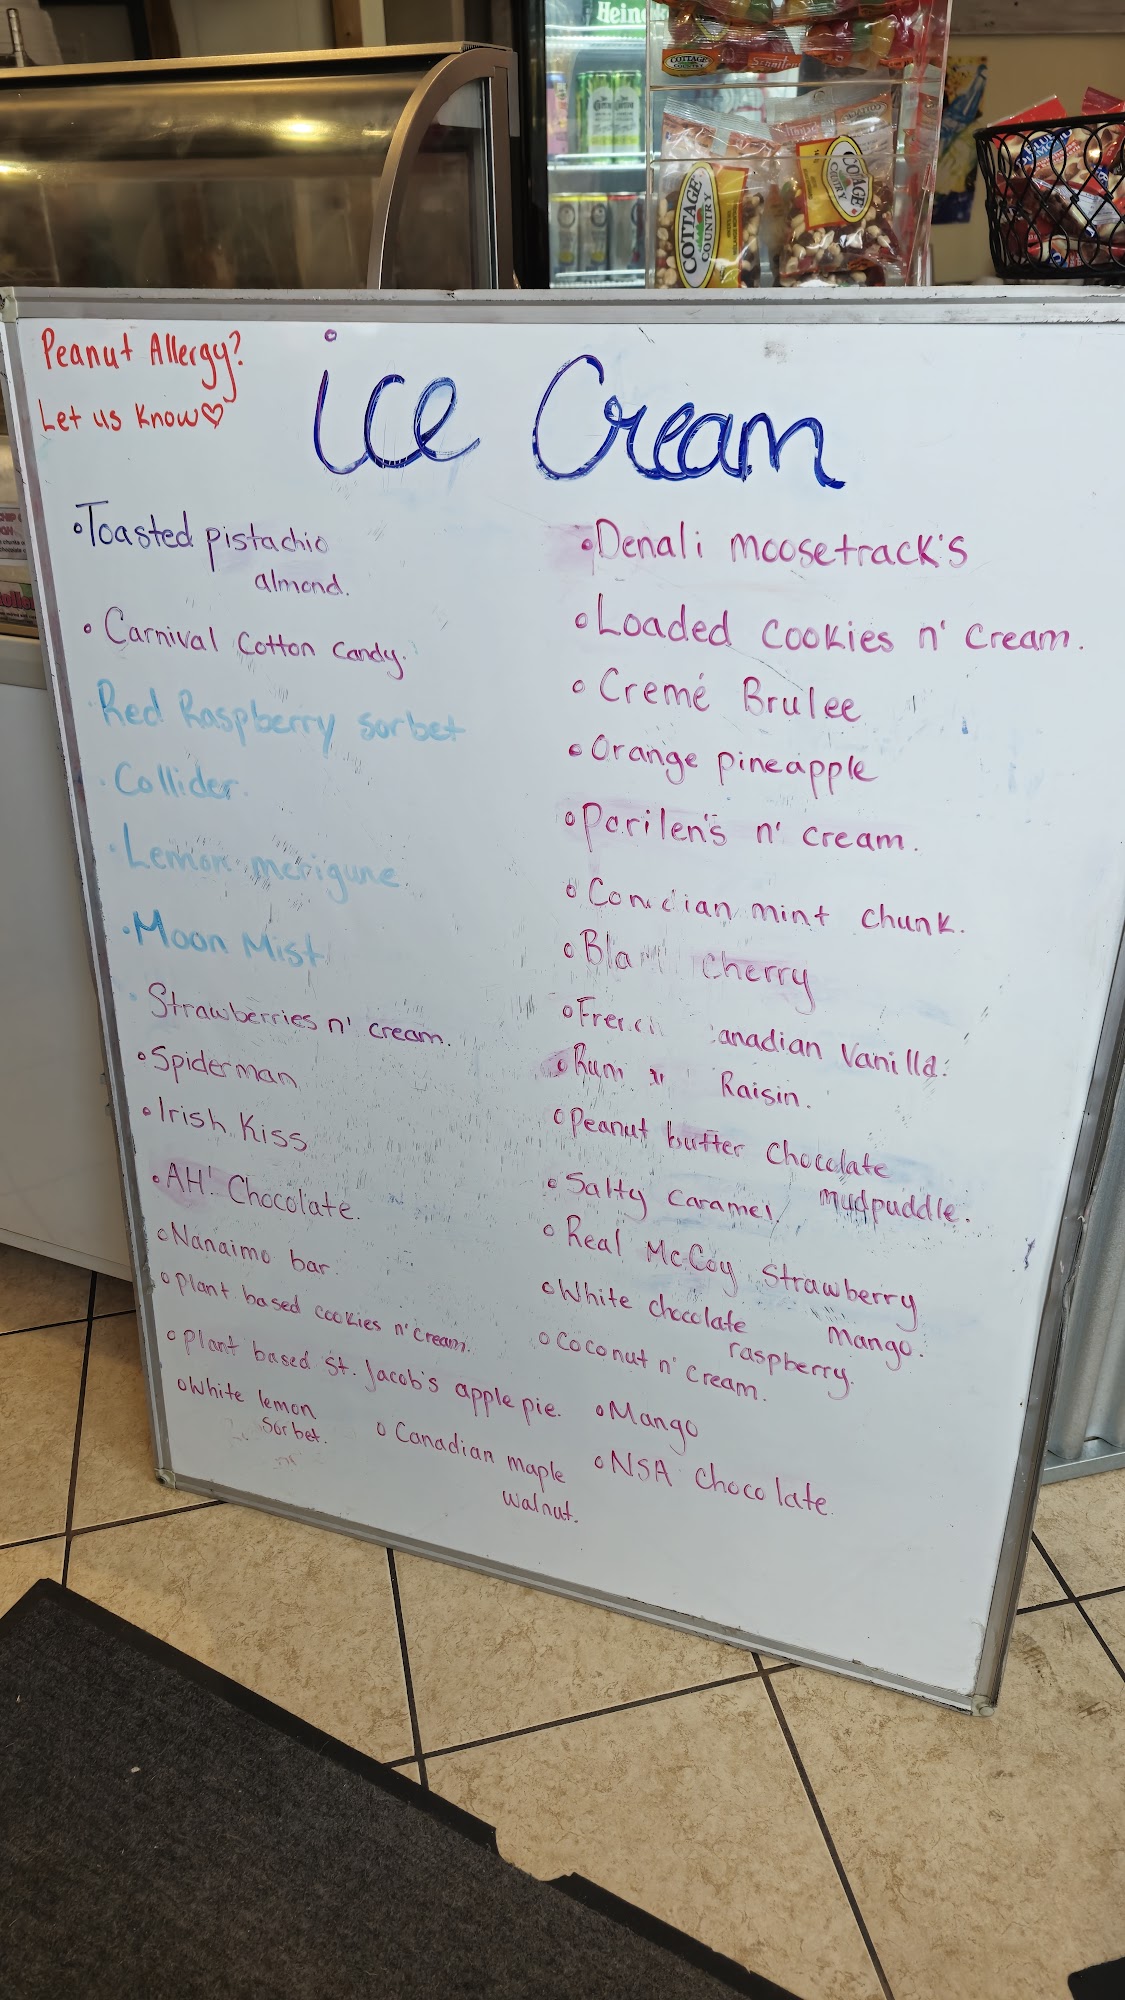 Heineken
COTTAGE
COUNTRY
COTTAGE
COUNTRY
COTTAGE
COUNTRY
Peanut Allergy?
Let us know♡
ice Cream
•Toasted pistachio
almond.
•Carnival Cotton Candy.
•Red Raspberry Sorbet
•Collider.
•Lemon merigune.
•Moon Mist
•Strawberries n' cream.
•Spiderman
•Irish Kiss
•AH! Chocolate.
•Nanaimo bar.
•Plant based cookies n' cream.
•Plant based St. Jacob's apple pie.
•White lemon
Sorbet.
•Canadian maple
walnut.
•Denali moosetrack's
•Loaded cookies n' cream.
•Cremé Brulee
•Orange pineapple
•Parilen's n' cream.
•Canadian mint chunk.
•Bla Cherry
•French anadian Vanilla.
•Rum n' Raisin.
•Peanut butter chocolate
mudpuddle.
•Salty caramel
•Real McCoy Strawberry
mango.
•White chocolate
raspberry.
•Coconut n' cream.
•Mango
•NSA chocolate